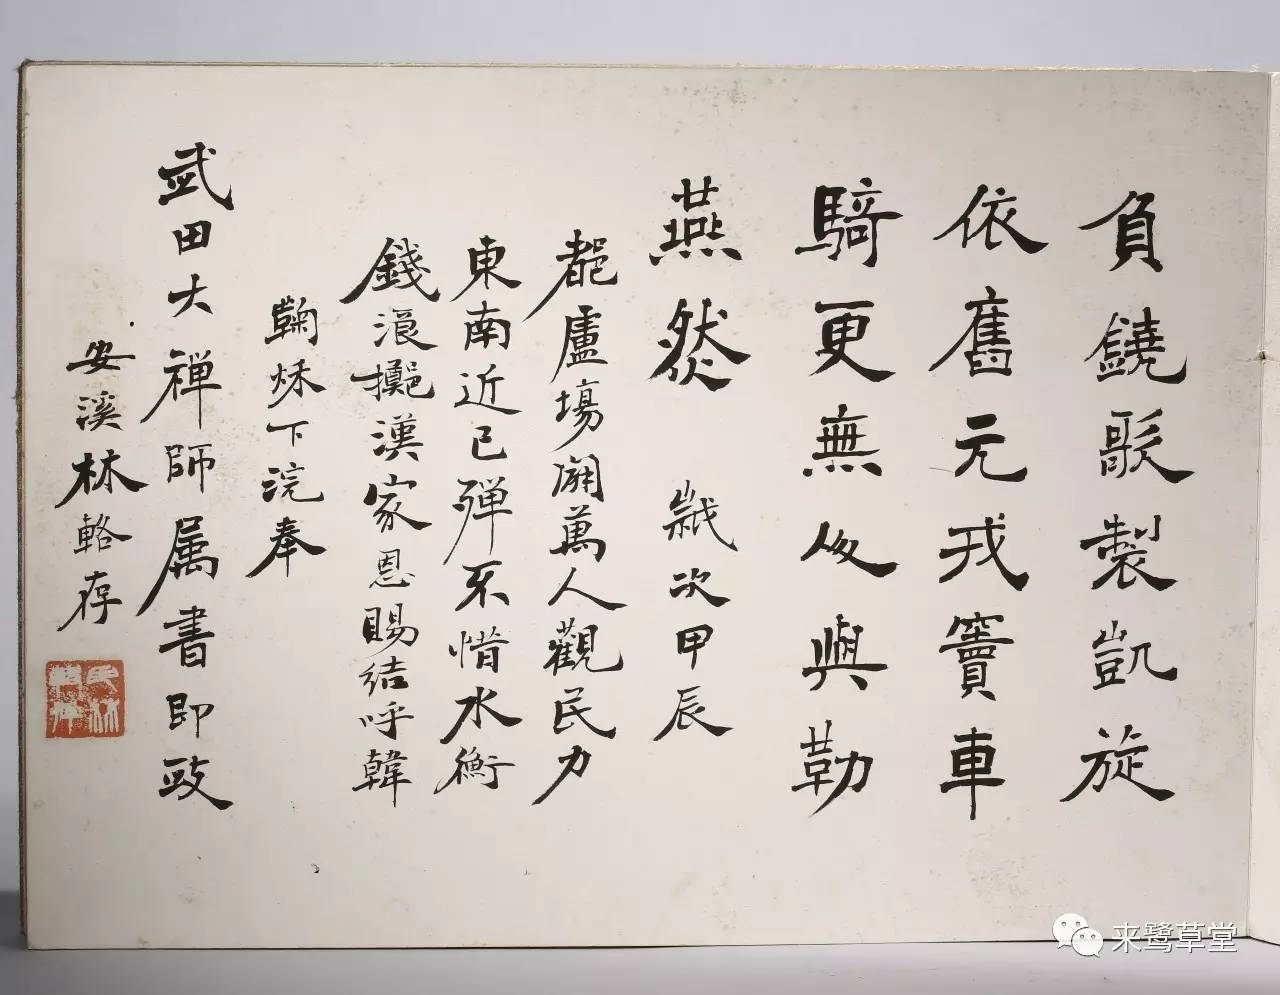 負鐃歌製凱旋
依舊元戎竇車
騎更無人與勒
燕然 歲次甲辰
都盧場開萬人觀民力
東南近已殫不惜水衡
錢浪擲漢家恩賜結呼韓
鞠秌下浣奉
武田大禅師属書即政
安溪林輅存
来鹭草堂